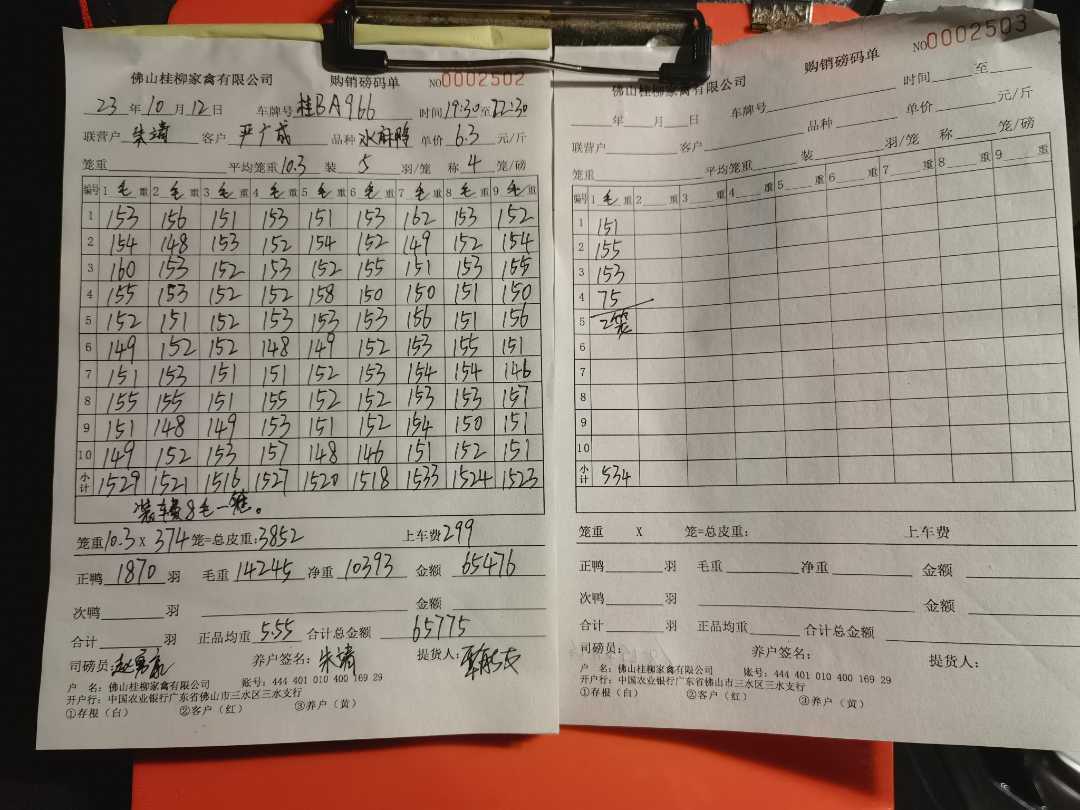 佛山桂柳家禽有限公司 购销磅码单 NO0002502
23年10月12日 车牌号桂BA966 时间19:30至22:30
联营户 朱靖 客户 严广成 品种 水麻鸭 单价 6.3 元/斤
笼重 平均笼重10.3 装 5 羽/笼 称 4 笼/磅
编号 1 毛 重 2 毛 重 3 毛 重 4 毛 重 5 毛 重 6 毛 重 7 毛 重 8 毛 重 9 毛 重
1 153 156 151 153 151 153 162 153 152
2 154 148 153 152 154 152 149 152 154
3 160 153 152 153 152 155 151 153 155
4 155 153 152 152 158 150 150 151 150
5 152 151 152 153 153 153 156 151 156
6 149 152 152 148 149 152 153 155 151
7 151 153 151 151 152 153 154 154 146
8 155 155 151 155 152 152 153 153 157
9 151 148 149 153 151 152 154 150 151
10 149 152 153 157 148 146 151 152 151
小计 1529 1521 1516 1527 1520 1518 1533 1524 1523
装车费8毛一笼。
笼重10.3 X 374 笼=总皮重:3852 上车费299
正鸭 1870 羽 毛重 14245 净重 10393 金额 65476
次鸭 羽 金额
合计 羽 正品均重 5.55 合计总金额 65775
司磅员: 养户签名: 朱靖 提货人:
户 名: 佛山桂柳家禽有限公司 账号: 444 401 010 400 169 29
开户行: 中国农业银行广东省佛山市三水区三水支行
①存根（白） ②客户（红） ③养户（黄）
佛山桂柳家禽有限公司 购销磅码单 NO0002503
年 月 日 车牌号 时间 至
联营户 客户 品种 单价 元/斤
笼重 平均笼重 装 羽/笼 称 笼/磅
编号 1 毛 重 2 重 3 重 4 重 5 重 6 重 7 重 8 重 9 重
1 151
2 155
3 153
4 75
5 2笼
6
7
8
9
10
小计 534
笼重 X 笼=总皮重: 上车费
正鸭 羽 毛重 净重 金额
次鸭 羽 金额
合计 羽 正品均重 合计总金额
司磅员: 养户签名: 提货人:
户 名: 佛山桂柳家禽有限公司 账号: 444 401 010 400 169 29
开户行: 中国农业银行广东省佛山市三水区三水支行
①存根（白） ②客户（红） ③养户（黄）